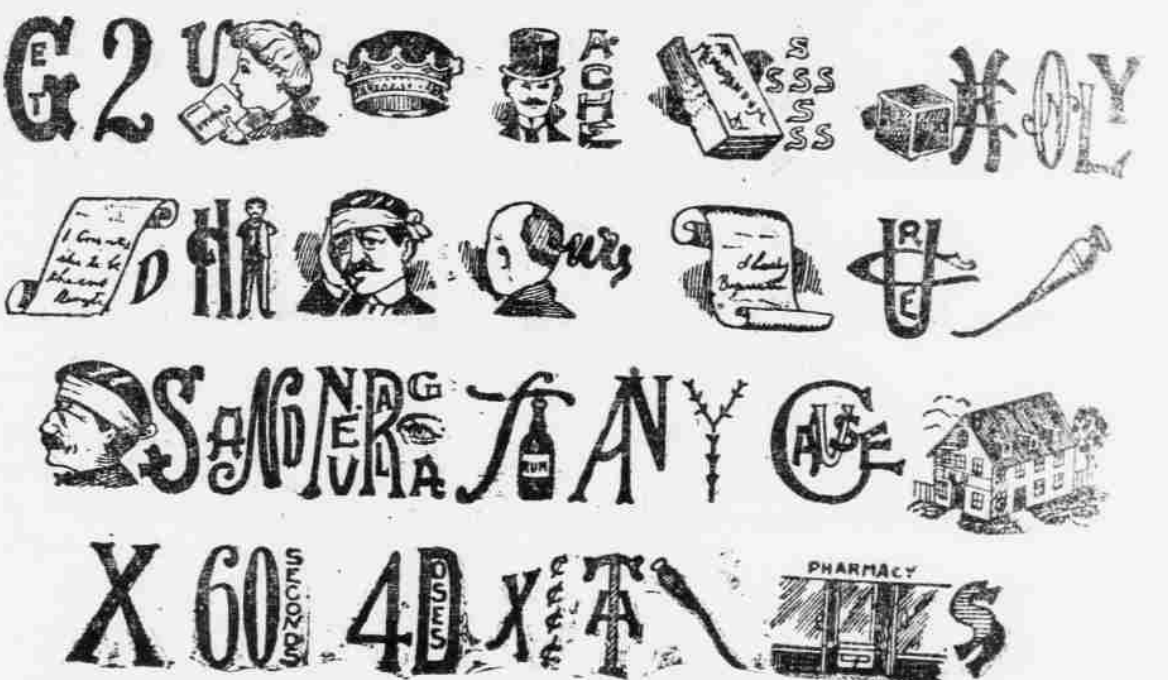 GET 2 U A-CHE S SSS S SS ONLY
D H ours I hereby CURE
S AND NEURALGA f RUM ANY CAUSE
X 60 SECONDS 4 DOSES X ¢¢¢¢¢ AT PHARMACY S